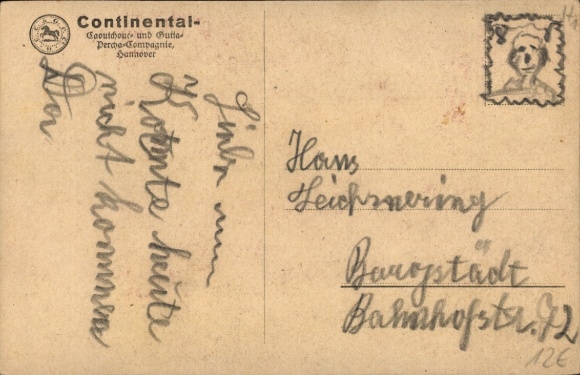 Continental-
Caoutchouc- und Gutta-
Percha-Compagnie,
Hannover
Konnte heute
nicht kommen
Hans
Teichmering
Burgstädt
Bahnhofstr. 72
12€